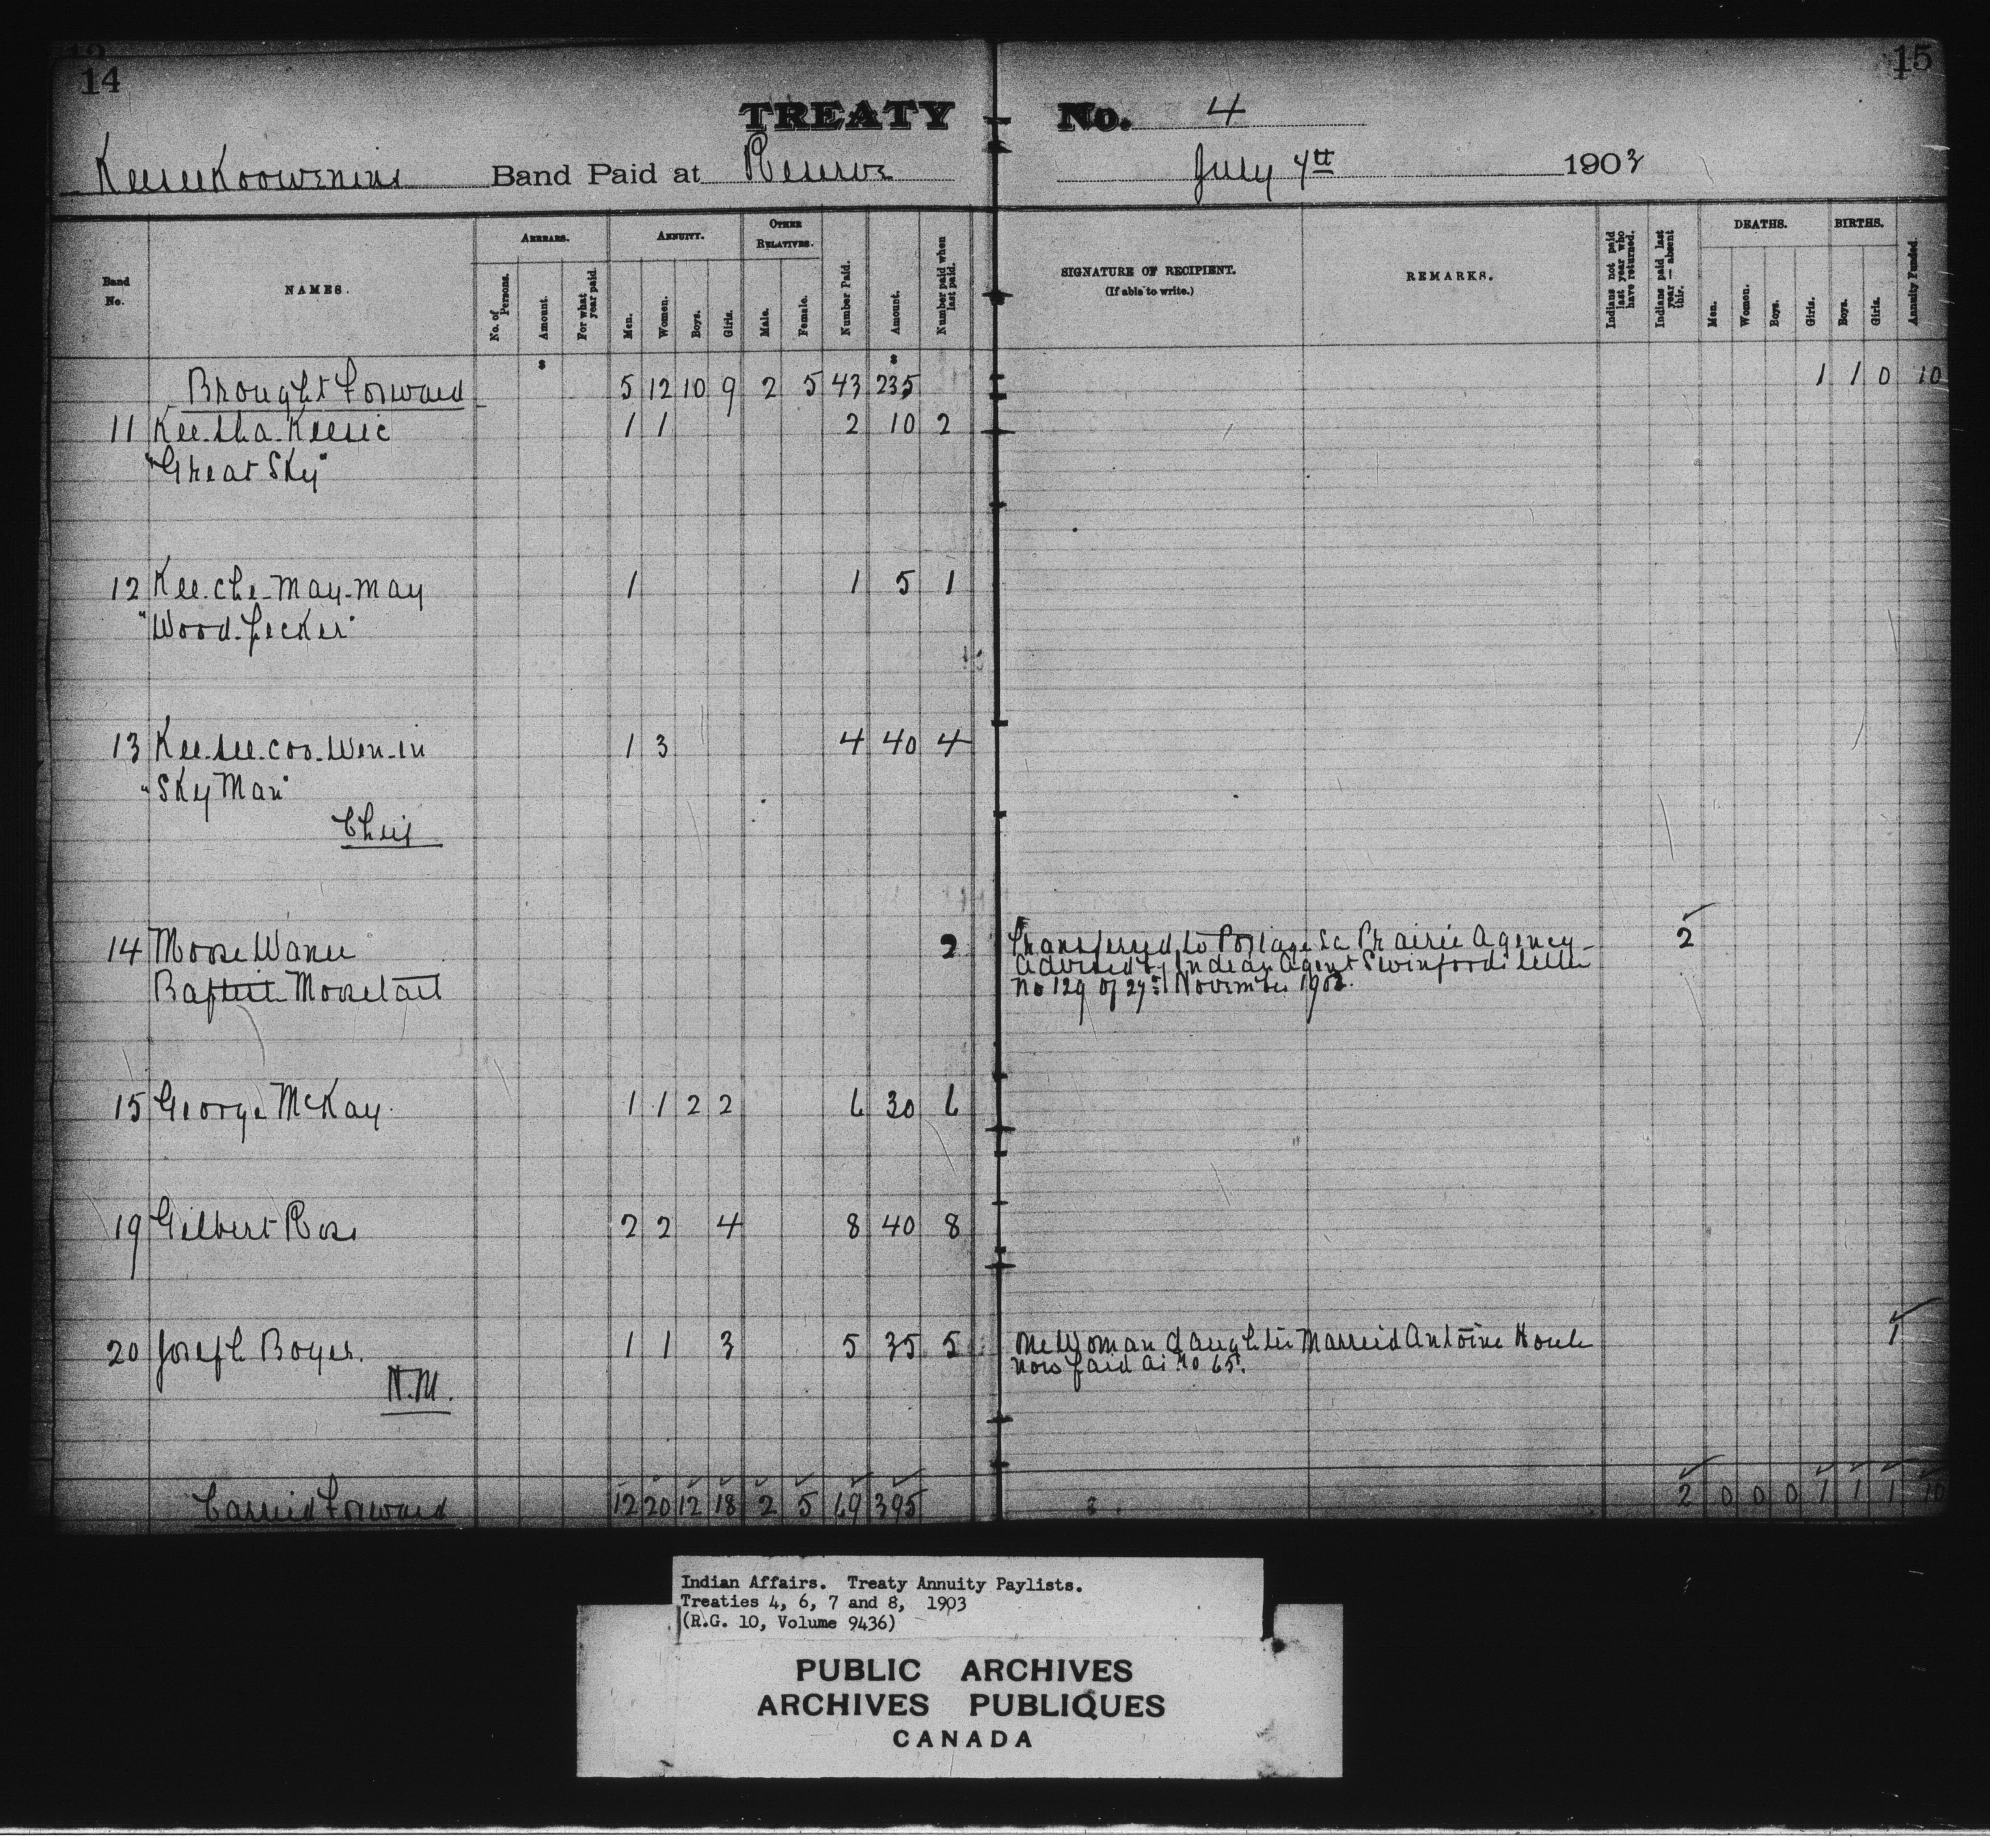 14
15
TREATY No. 4
Keeseekoowenins Band Paid at Reserve July 4th 1903
Band No.
NAMES.
ARREARS.
No. of Persons.
Amount.
For what year paid.
ANNUITY.
Men.
Women.
Boys.
Girls.
OTHER RELATIVES.
Male.
Female.
Number Paid.
Amount.
Number paid when last paid.
SIGNATURE OF RECIPIENT.
(If able to write.)
REMARKS.
Indians not paid last year who have returned.
Indians paid last year — absent this.
DEATHS.
Men.
Women.
Boys.
Girls.
BIRTHS.
Boys.
Girls.
Annuity Funded.
$ $
Brought Forward 5 12 10 9 2 5 43 235 1 1 0 10
11 Kee-sha-Keesic 1 1 2 10 2
"Great Sky"
12 Kee-che-May-May 1 1 5 1
"Wood-pecker"
13 Kee-see-coo-wen-in 1 3 4 40 4
"Sky Man"
Chief
14 Moose Wanee 2 Transferred to Portage La Prairie Agency- 2
advised by Indian Agent Swinfords letter
Baptist Moosetail No 129 of 27th November 1902.
15 George McKay. 1 1 2 2 6 30 6
19 Gilbert Ross 2 2 4 8 40 8
20 Joseph Boyer. 1 1 3 5 35 5 One Woman daughter Married Antoine Houle 1
now paid at No 65.
H.M.
Carried Forward 12 20 12 18 2 5 69 395 2 0 0 0 1 1 1 10
Indian Affairs. Treaty Annuity Paylists.
Treaties 4, 6, 7 and 8, 1903
(R.G. 10, Volume 9436)
PUBLIC ARCHIVES
ARCHIVES PUBLIQUES
CANADA